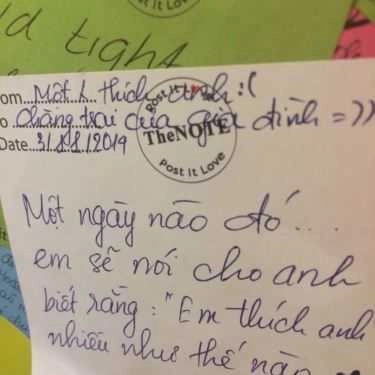 ld tight
From Một k thích anh :(
To chàng trai của gia đình =))
Date 31/8/2019
Post It Love
TheNOTE
Post It Love
Một ngày nào đó....
em sẽ nói cho anh
biết rằng: "Em thích anh
nhiều như thế nào